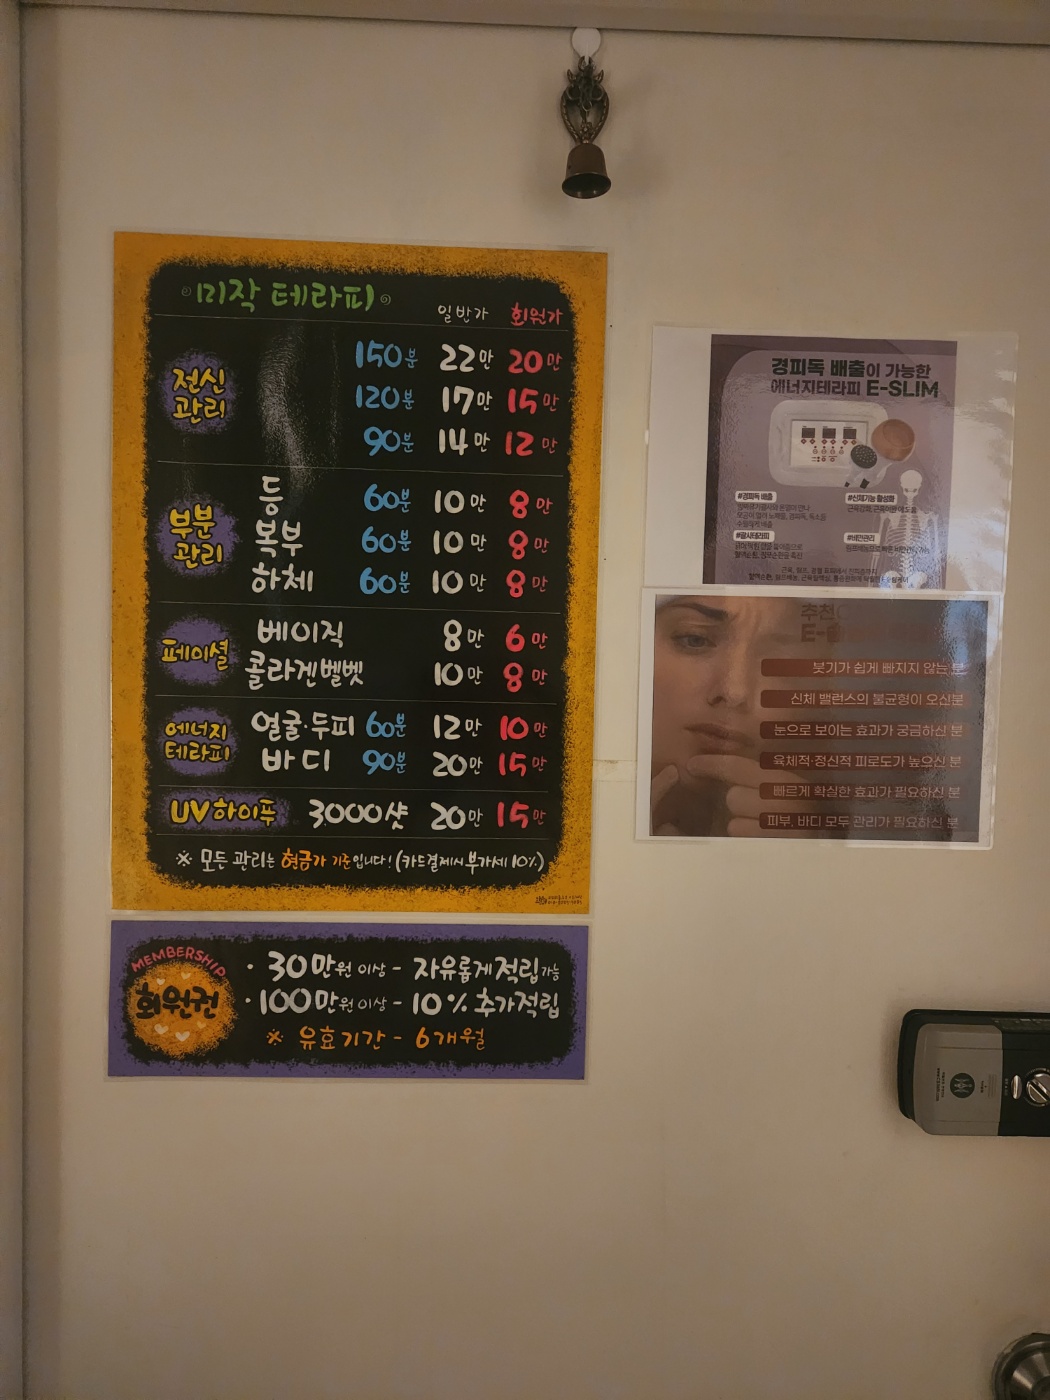 미작 테라피
일반가 회원가
전신 관리
150분 22만 20만
120분 17만 15만
90분 14만 12만
부분 관리
등 60분 10만 8만
복부 60분 10만 8만
하체 60분 10만 8만
페이셜
베이직 8만 6만
콜라겐벨벳 10만 8만
에너지 테라피
얼굴·두피 60분 12만 10만
바디 90분 20만 15만
UV하이푸 3,000샷 20만 15만
※ 모든 관리는 현금가 기준입니다! (카드결제시 부가세 10%)
MEMBERSHIP
회원권
· 30만원 이상 - 자유롭게 적립가능
· 100만원 이상 - 10% 추가적립
※ 유효기간 - 6개월
경피독 배출이 가능한
에너지테라피 E-SLIM
#경피독 배출
#신체기능 활성화
#괄사테라피
#비만관리
추천
붓기가 쉽게 빠지지 않는 분
신체 밸런스의 불균형이 오신분
눈으로 보이는 효과가 궁금하신 분
육체적·정신적 피로도가 높으신 분
빠르게 확실한 효과가 필요하신 분
피부, 바디 모두 관리가 필요하신 분